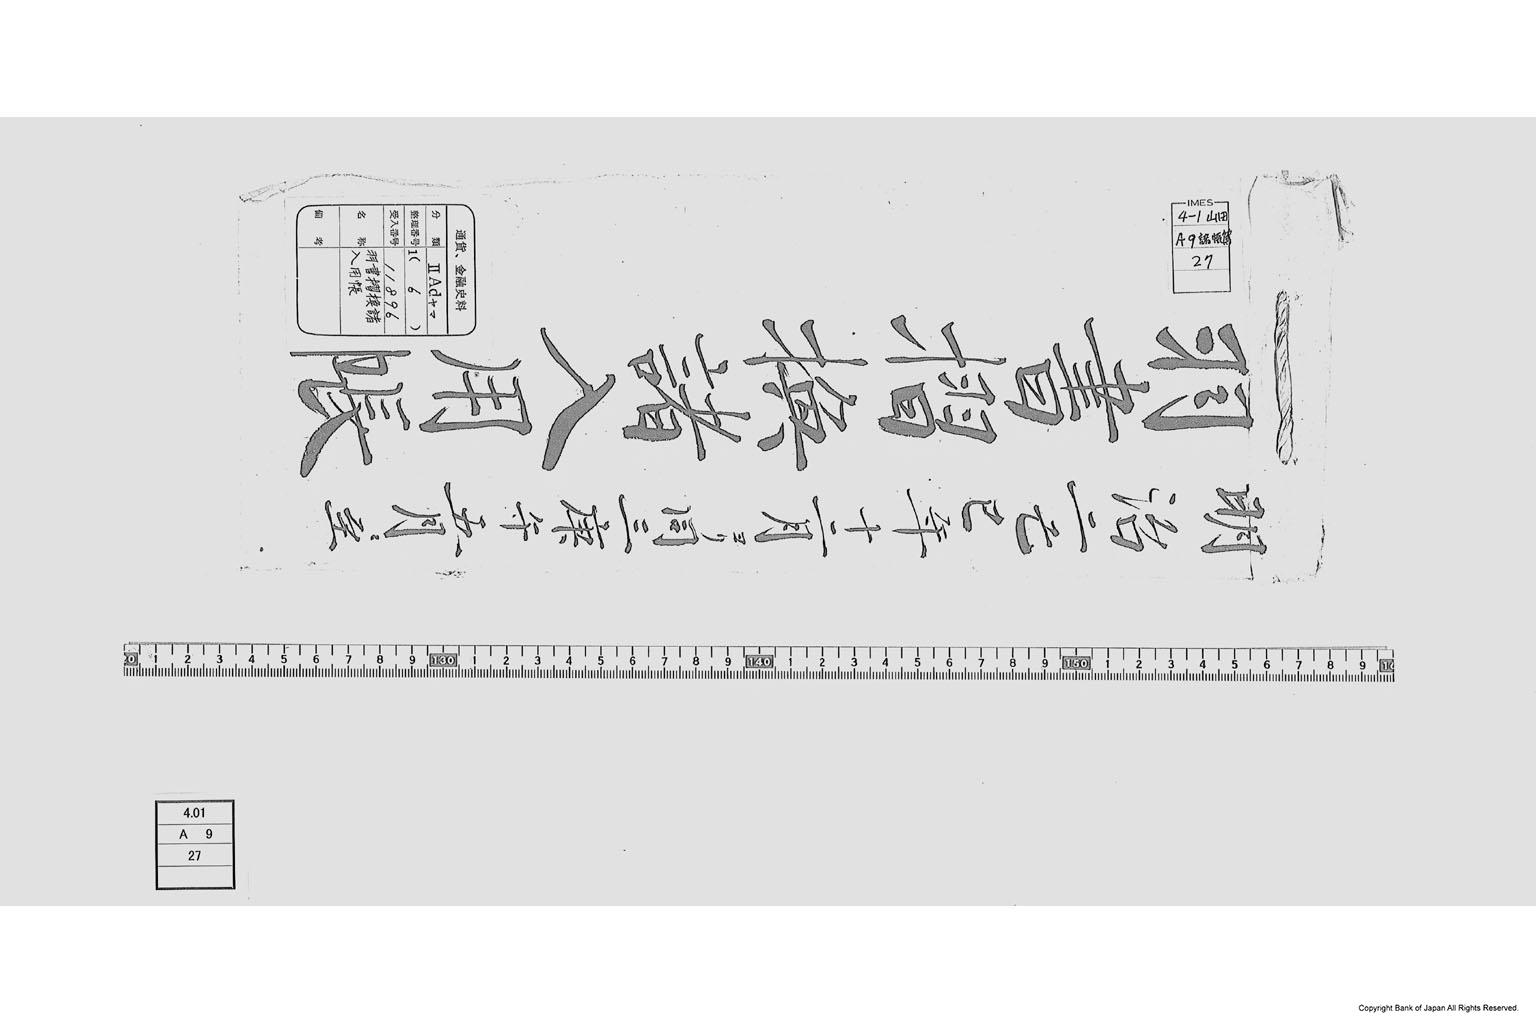 羽書摺換諸入用帳
明治二己巳年十一月ヨリ同三庚午五月ニ至
IMES
4-1 山田
A9 諸帳簿
27
通貨、金融史料
分類 ⅡAdヤマ
整理番号 1( 6 )
受入番号 11896
名称 羽書摺換諸
入用帳
備考
1 2 3 4 5 6 7 8 9 130 1 2 3 4 5 6 7 8 9 140 1 2 3 4 5 6 7 8 9 150 1 2 3 4 5 6 7 8 9
4.01
A 9
27
Copyright Bank of Japan All Rights Reserved.